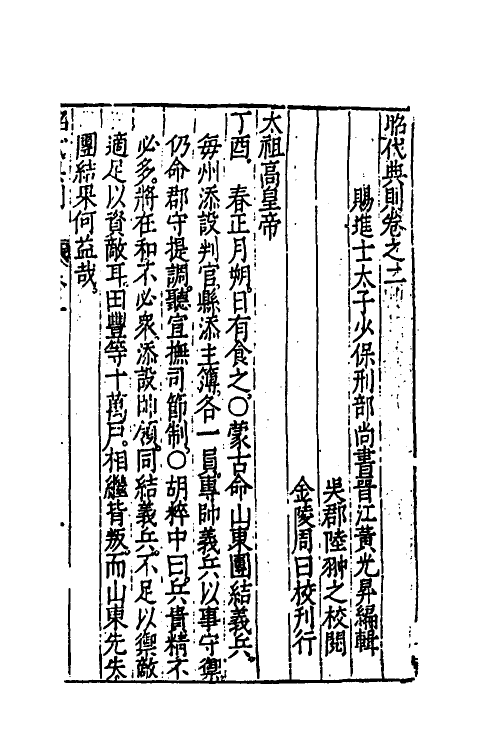 昭代典則卷之二
賜進士太子少保刑部尚書晉江黃光昇編輯
吳郡陸翀之校閱
金陵周曰校刊行
太祖高皇帝
丁酉。春正月朔。日有食之。○蒙古命山東團結義兵。
每州添設判官縣添主簿。各一員專帥義兵以事守禦
仍命郡守提調。聽宣撫司節制。○胡粹中曰。兵貴精不
必多。將在和不必眾。添設頭領。同結義兵。不足以禦敵
適足以資敵耳。田豐等十萬戶。相繼皆叛而山東先失
團結果何益哉。